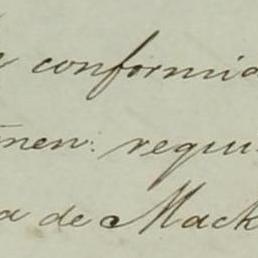 conformid
men: requi
a de Mack